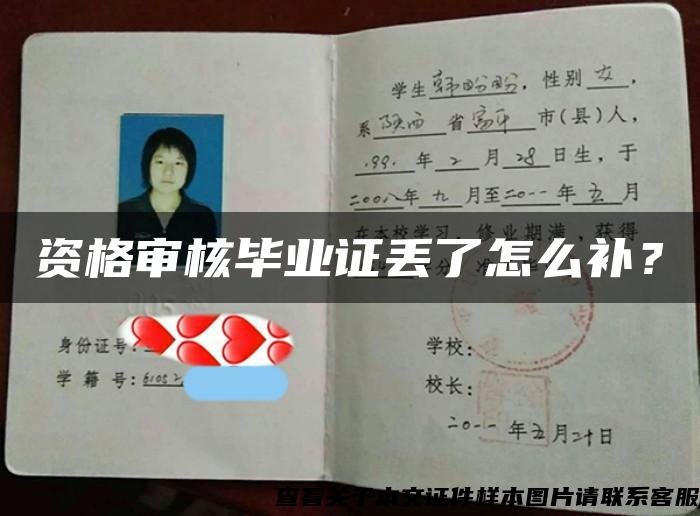 学生韩盼盼，性别女，
系陕西省富平市(县)人，
1991年2月28日生，于
二00八年九月至二0一一年五月
在本校学习，修业期满，获得
资格审核毕业证丢了怎么补？
身份证号：
学籍号：6105
学校：
校长：
二0一一年五月二十日
查看关于本文证件样本图片请联系客服